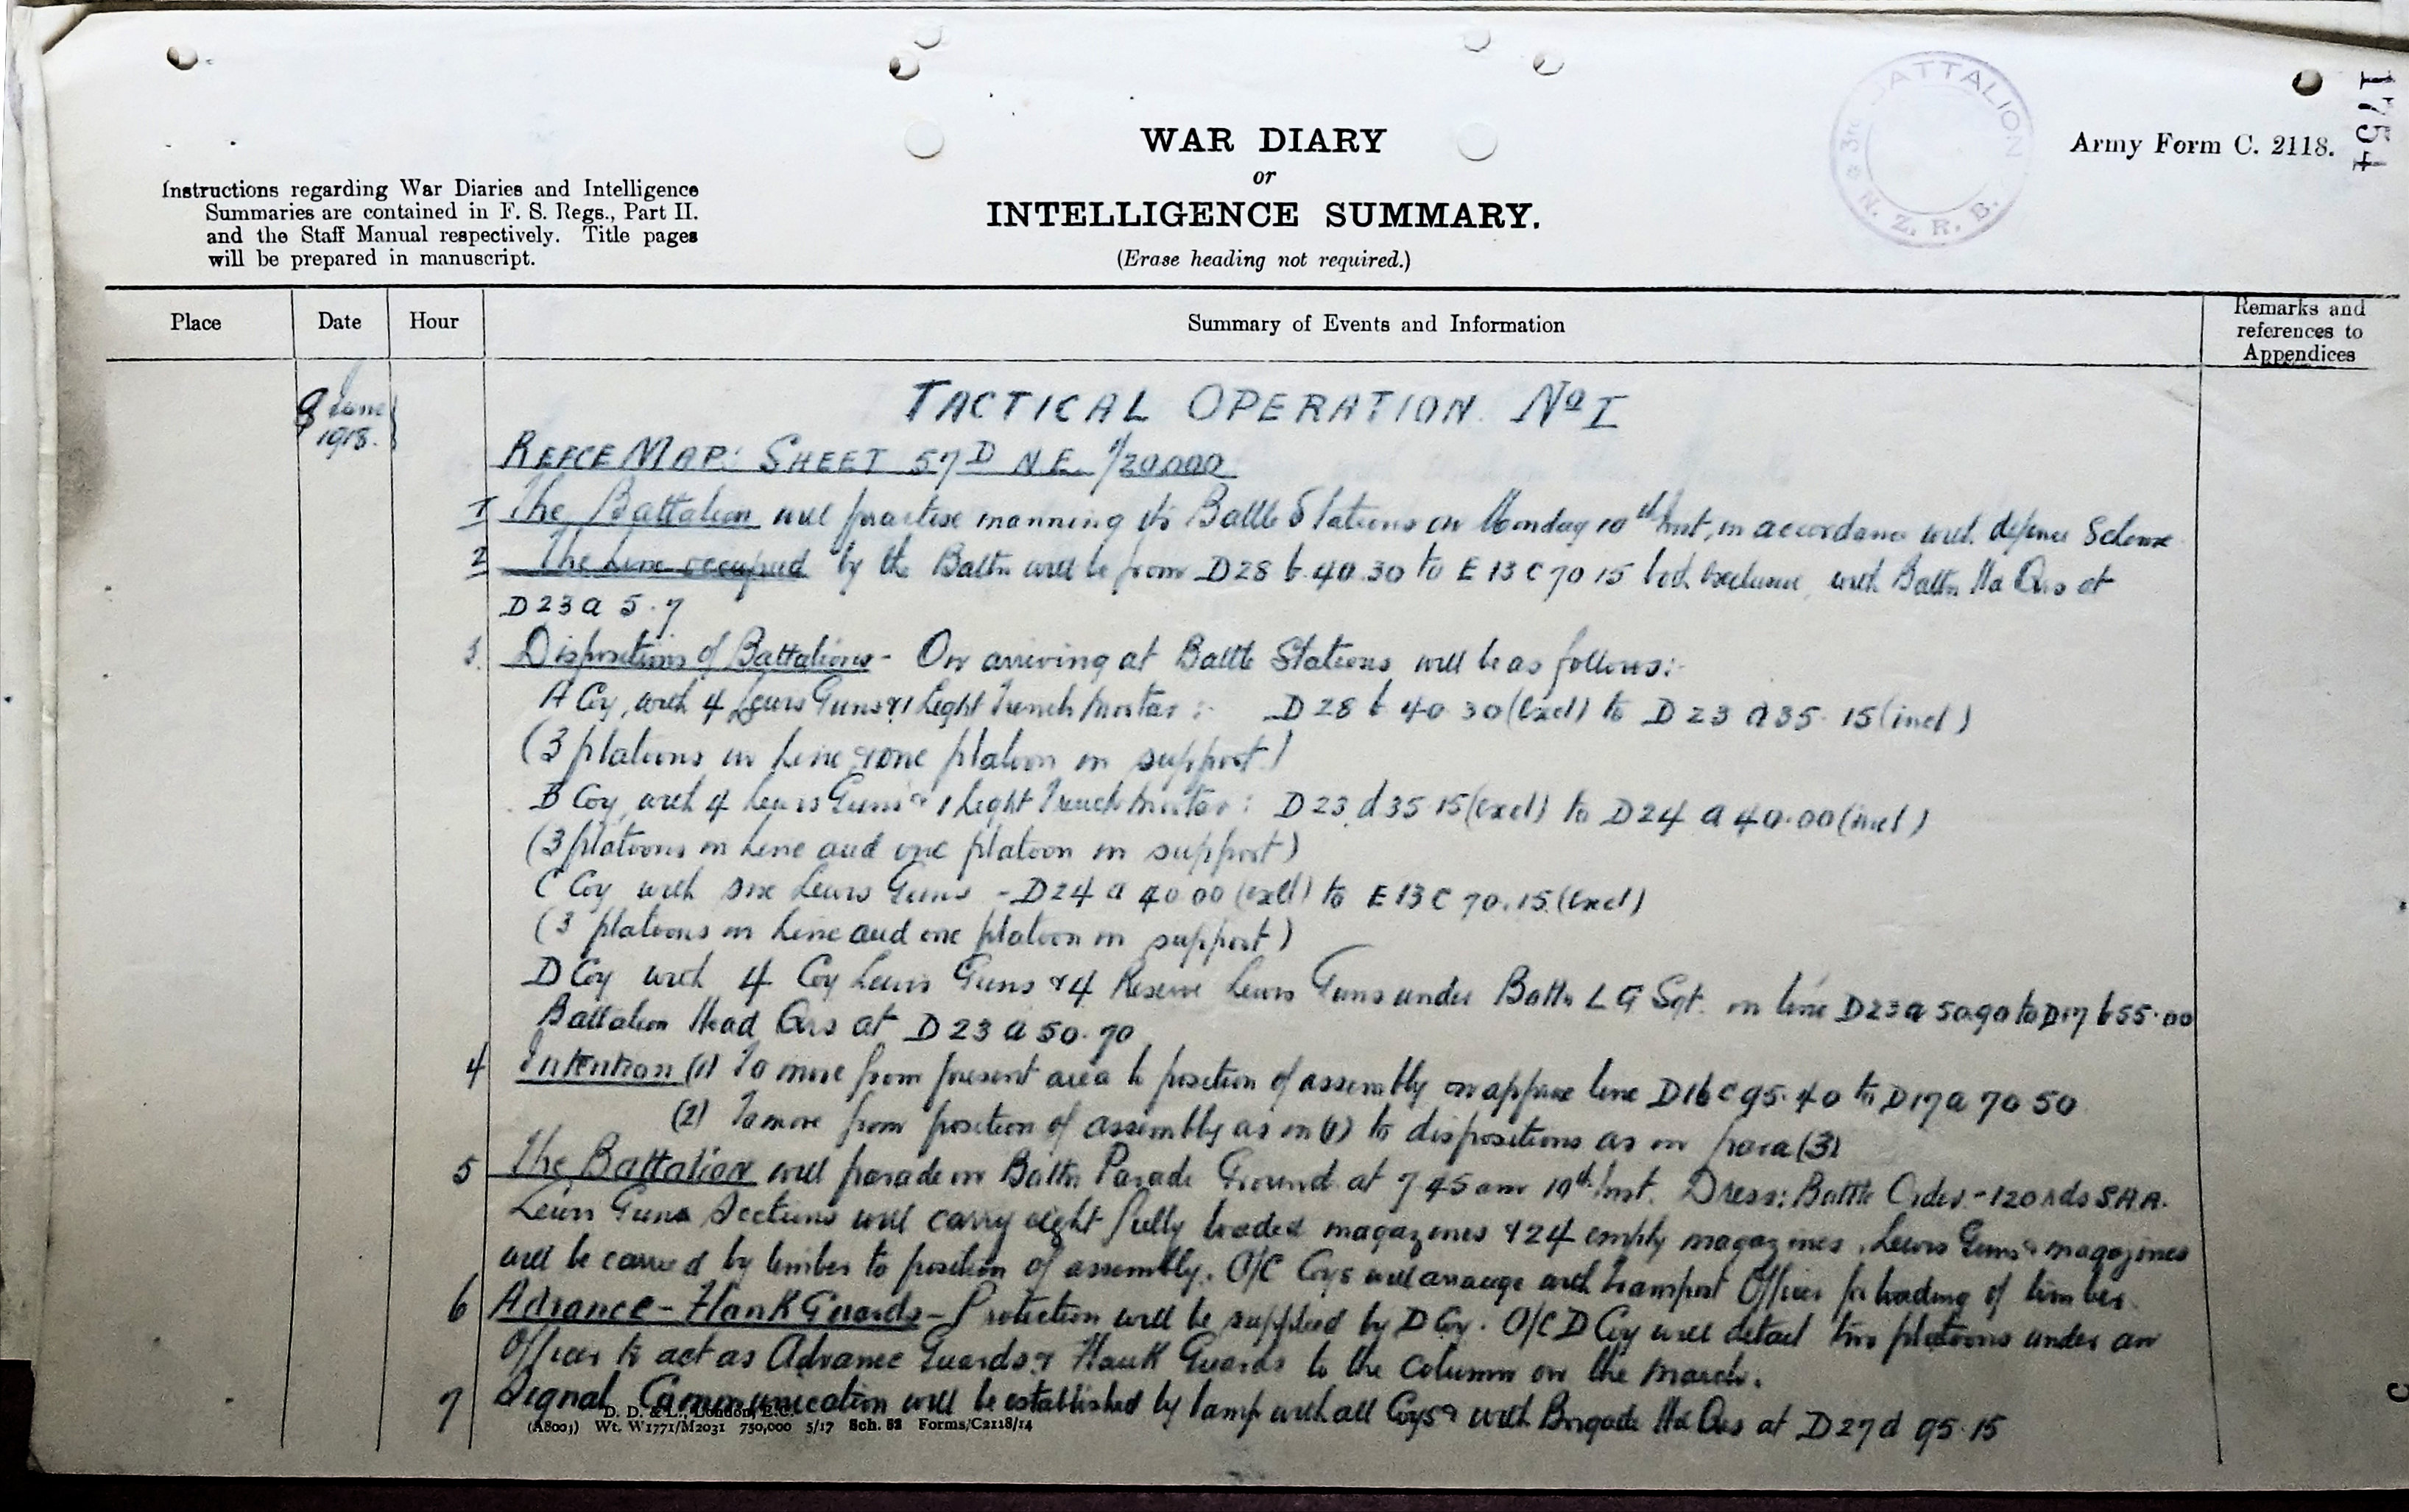 1754
3rd BATTALION
N. Z. R. B.
Army Form C. 2118.
WAR DIARY
or
INTELLIGENCE SUMMARY.
(Erase heading not required.)
Instructions regarding War Diaries and Intelligence
Summaries are contained in F. S. Regs., Part II.
and the Staff Manual respectively. Title pages
will be prepared in manuscript.
Place Date Hour Summary of Events and Information Remarks and
references to
Appendices
June
1918.
TACTICAL OPERATION No I
REFCE MAP: SHEET 57D N.E. 1/20,000
1 The Battalion will practise manning its Battle Stations on Monday 10th Inst, in accordance with defence Scheme
2 The Line occupied by the Battn will be from D28 b.40.30 to E 13 C 70 15 both exclusive, with Battn Hd Qrs at
D23a 5.7
3. Dispositions of Battalions - On arriving at Battle Stations will be as follows:-
A Coy, with 4 Lewis Guns & 1 Light Trench Mortar :- D 28 b 40 30 (excl) to D 23 d 35. 15 (incl)
(3 platoons in Line & one platoon in support)
B Coy, with 4 Lewis Guns & 1 Light Trench Mortar : D 23 d 35 15 (excl) to D24 a 40.00 (incl)
(3 platoons in Line and one platoon in support)
C Coy with six Lewis Guns - D24 a 40 00 (excl) to E 13 C 70.15. (excl)
(3 platoons in Line and one platoon in support)
D Coy with 4 Coy Lewis Guns & 4 Reserve Lewis Guns under Battn L G Sgt. in line D23a 50.90 to D17 b 55.00
Battalion Head Qrs at D 23 a 50.70
4 Intention (1) To move from present area to position of assembly on approx line D16 c 95.40 to D17a 70 50
(2) To move from position of assembly as in (1) to dispositions as in para (3)
5 The Battalion will parade on Battn Parade Ground at 7 45 am 10th Inst. Dress: Battle Order - 120 rds S.A.A.
Lewis Guns Sections will carry eight fully loaded magazines & 24 empty magazines. Lewis Guns & magazines
will be carried by limber to position of assembly. O/C Coys will arrange with Transport Officer for loading of limber.
6 Advance - Flank Guards - Protection will be supplied by D Coy. O/C D Coy will detail two platoons under an
Officer to act as Advance Guards & Flank Guards to the column on the march.
7 Signal Communication will be established by lamp with all Coys & with Brigade Hd Qrs at D27d 95.15
D. D. & L., London, E.C.
(A8003) Wt. W1771/M2031 750,000 5/17 Sch. 52 Forms/C2118/14